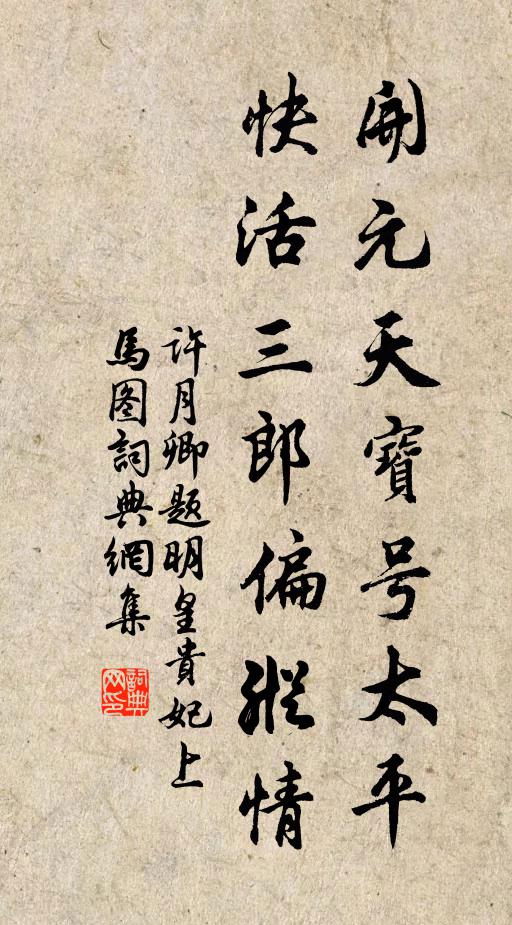 開元天寶号太平
快活三郎偏縱情
許月卿题明皇貴妃上
馬图詞典網集
詞典
网印